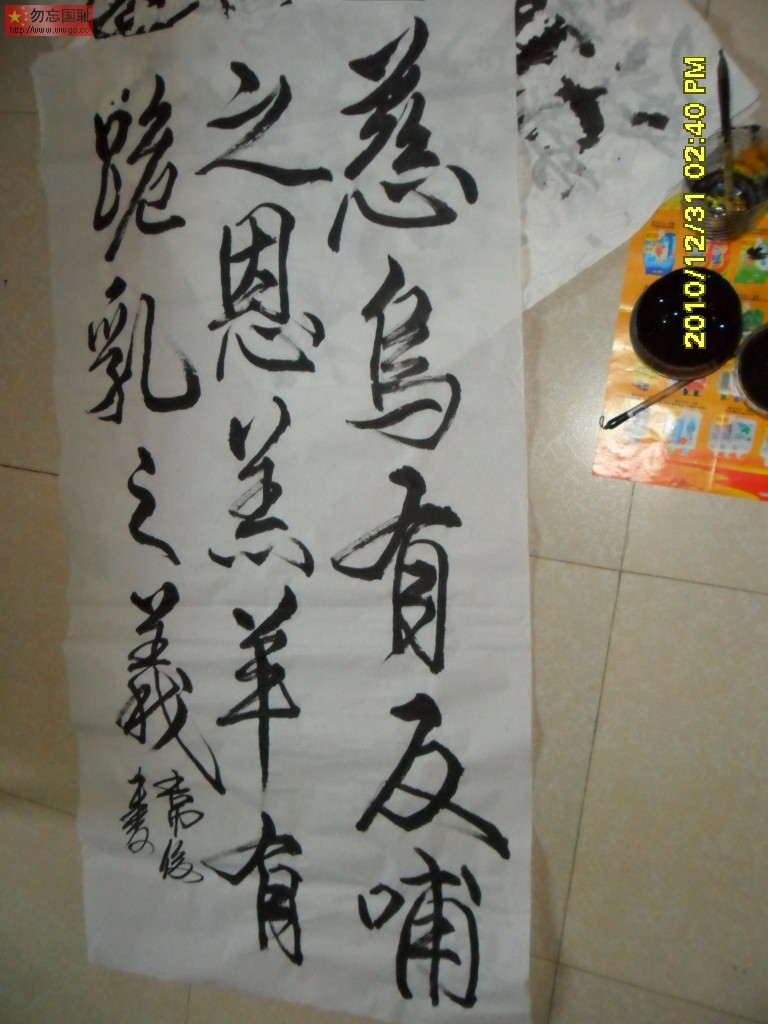 慈烏有反哺
之恩羔羊有
跪乳之義
勿忘国耻
http://www.wwgc.cc
2010/12/31 02:40 PM